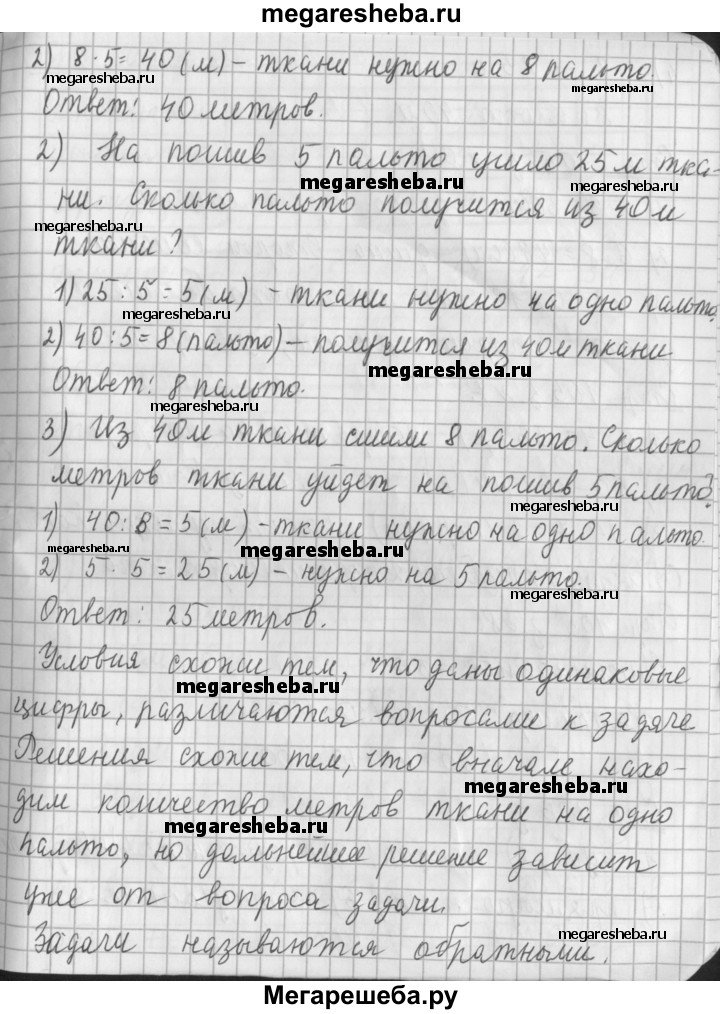 megaresheba.ru
2) 8·5=40(м) – ткани нужно на 8 пальто.
megaresheba.ru
megaresheba.ru
Ответ: 40 метров.
2) На пошив 5 пальто ушло 25 м тка-
megaresheba.ru
megaresheba.ru
ни. Сколько пальто получится из 40 м
megaresheba.ru
ткани?
1) 25 : 5 = 5(м) – ткани нужно на одно пальто.
megaresheba.ru
megaresheba.ru
2) 40:5=8(пальто) – получится из 40м ткани
megaresheba.ru
Ответ: 8 пальто.
megaresheba.ru
3) Из 40м ткани сшили 8 пальто. Сколько
megaresheba.ru
метров ткани уйдет на пошив 5 пальто?
megaresheba.ru
1) 40:8=5(м) – ткани нужно на одно пальто.
megaresheba.ru
megaresheba.ru
2) 5 · 5=25(м) – нужно на 5 пальто.
megaresheba.ru
Ответ: 25 метров.
Условия схожи тем, что даны одинаковые
megaresheba.ru
megaresheba.ru
цифры, различаются вопросами к задаче
Решения схожи тем, что вначале нахо-
megaresheba.ru
дим количество метров ткани на одно
megaresheba.ru
пальто, но дальнейшее решение зависит
уже от вопроса задачи.
megaresheba.ru
Задачи называются обратными.
Мегарешеба.ру